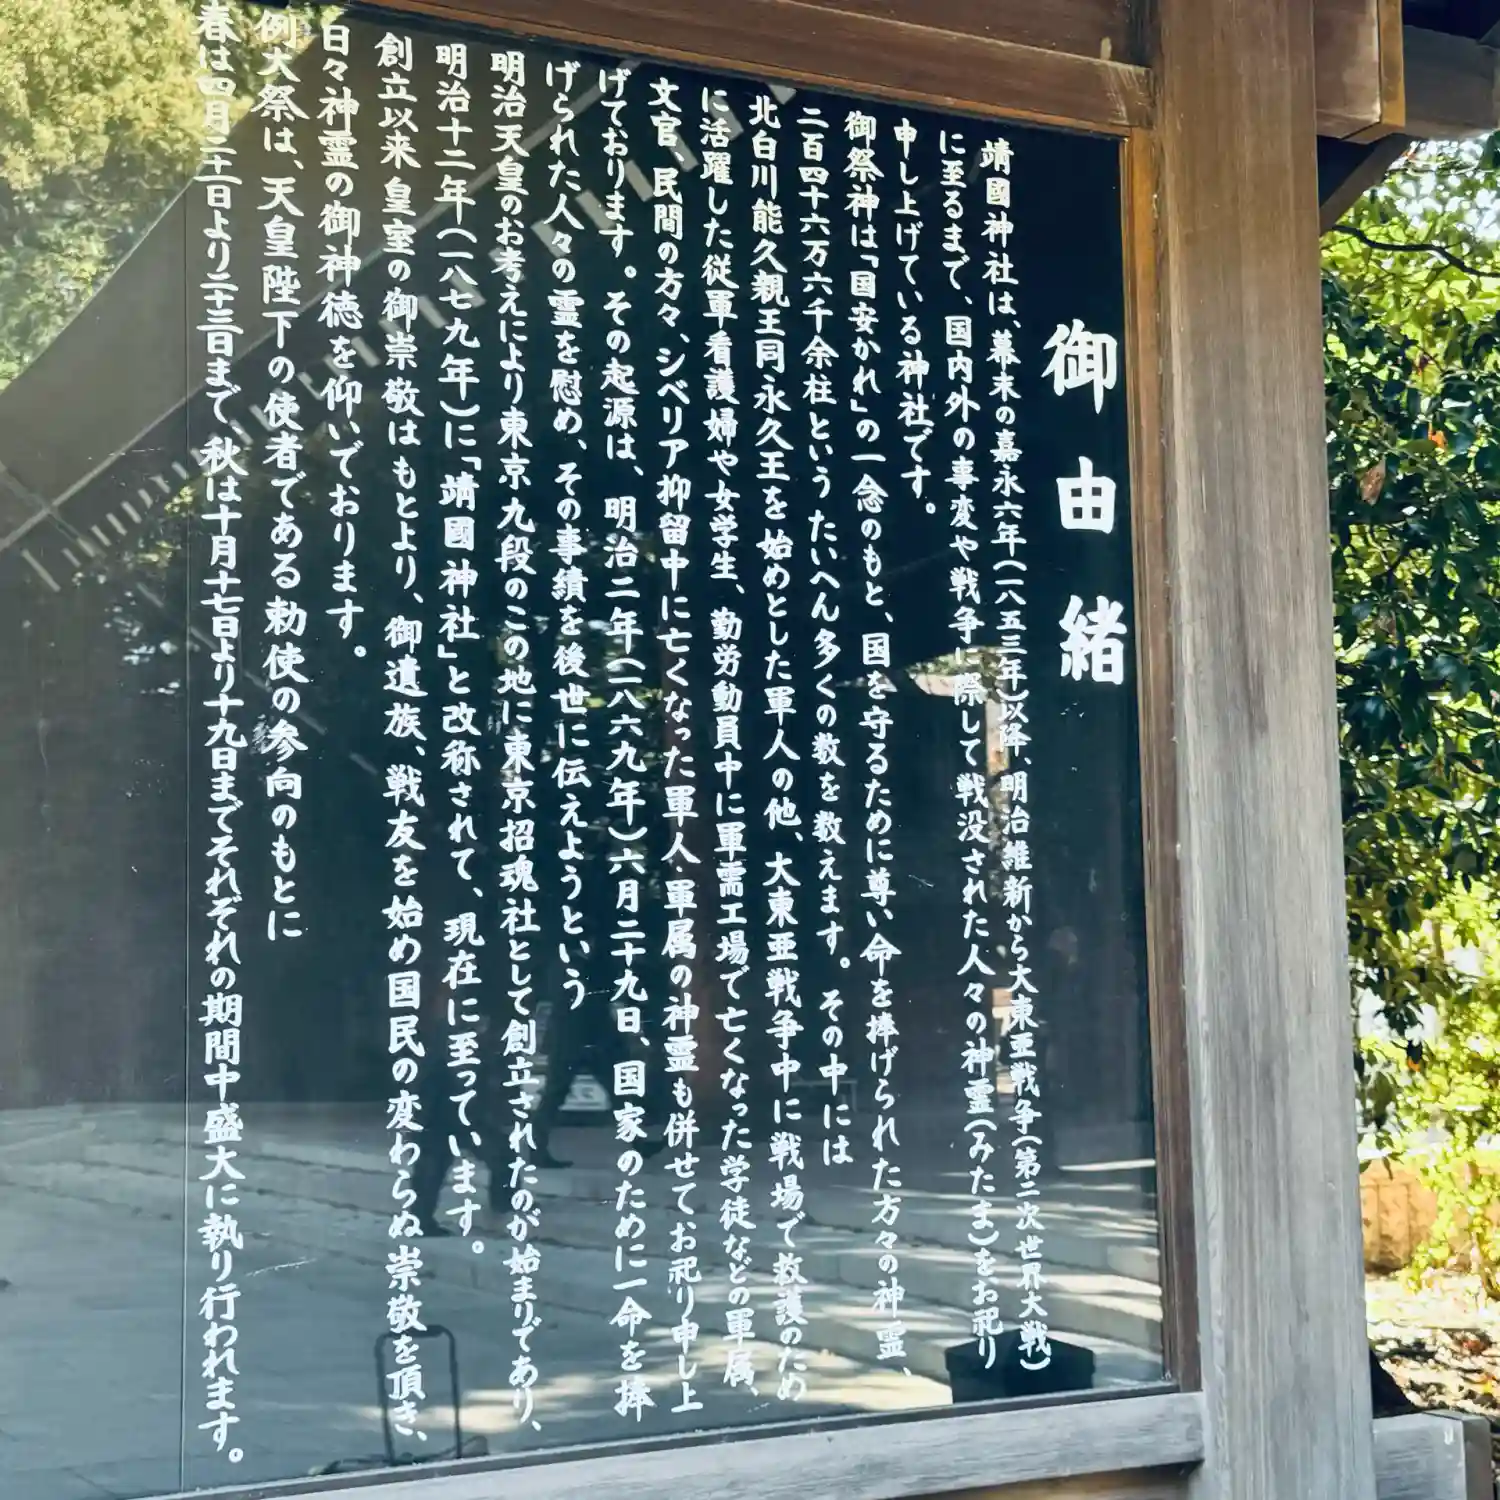 御由緒
靖國神社は、幕末の嘉永六年(一八五三年)以降、明治維新から大東亜戦争(第二次世界大戦)
に至るまで、国内外の事変や戦争に際して戦没された人々の神霊(みたま)をお祀り
申し上げている神社です。
御祭神は「国安かれ」の一念のもと、国を守るために尊い命を捧げられた方々の神霊、
二百四十六万六千余柱というたいへん多くの数を数えます。その中には
北白川能久親王同永久王を始めとした軍人の他、大東亜戦争中に戦場で救護のため
に活躍した従軍看護婦や女学生、勤労動員中に軍需工場で亡くなった学徒などの軍属、
文官、民間の方々、シベリア抑留中に亡くなった軍人・軍属の神霊も併せてお祀り申し上
げております。その起源は、明治二年(一八六九年)六月二十九日、国家のために一命を捧
げられた人々の霊を慰め、その事績を後世に伝えようという
明治天皇のお考えにより東京九段のこの地に東京招魂社として創立されたのが始まりであり、
明治十二年(一八七九年)に「靖國神社」と改称されて、現在に至っています。
創立以来 皇室の御崇敬はもとより、御遺族、戦友を始め国民の変わらぬ崇敬を頂き、
日々神霊の御神徳を仰いでおります。
例大祭は、天皇陛下の使者である勅使の参向のもとに
春は四月二十一日より二十三日まで、秋は十月十七日より十九日までそれぞれの期間中盛大に執り行われます。